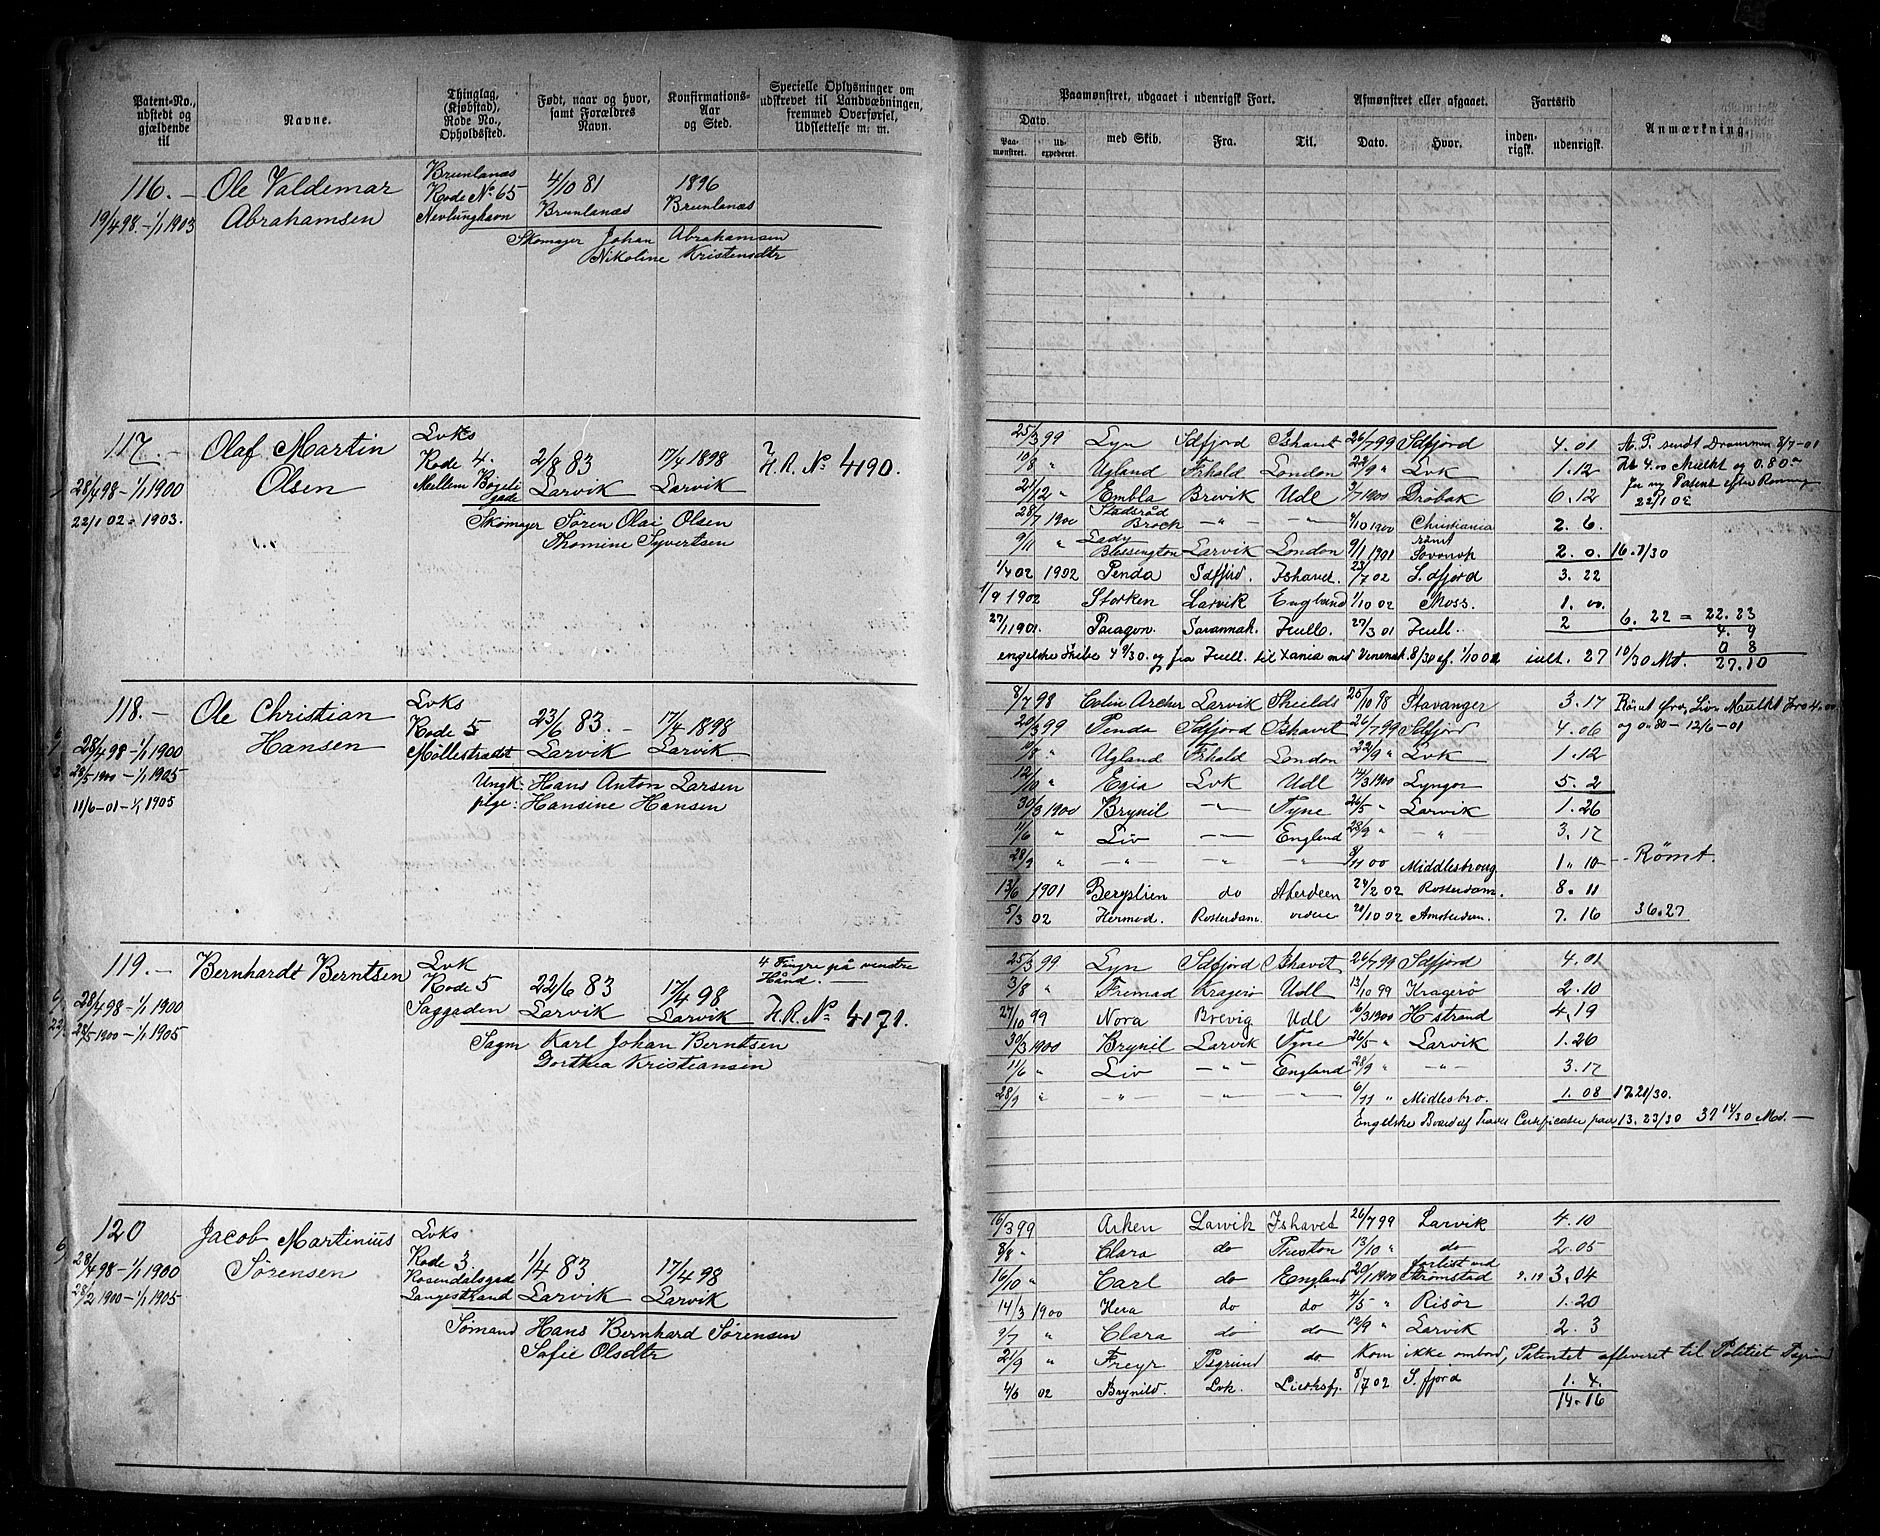 Patent-No., udstedt og gjældende til
Navne.
Thinglag, (Kjøbstad), Rode No., Opholdssted.
Født, naar og hvor, samt Forældres Navn.
Konfirmations-Aar og Sted.
Specielle Oplysninger om udskrevet til Landvæbningen, fremmed Overførsel, Udslettelse m. m.
Paamønstret, udgaaet i udenrigsk Fart.
Afmønstret eller afgaaet.
Fartstid
Anmærkning
Dato.
Paa-mønstret.
Ud-expederet.
med Skib.
Fra.
Til.
Dato.
Hvor.
inden-rigsk.
udenrigsk.
116. — Ole Valdemar Brunlanæs 4/10 81 1896
19/4 98. – 1/1 1903 Abrahamsen Rode No 65 Brunlanæs Brunlanæs
Nevlunghavn
Skomager Johan Abrahamsen
Nikoline Kristensdtr
117. — Olaf Martin Lvks 2/8 83 17/4 1898
28/4 98 – 1/1 1900 Olsen Rode 4. Larvik Larvik H.R. No 4190.
Mellem Bøgeligade
22/1 02 – 1903.
Skomager Søren Olai Olsen
Thomine Syvertsen
25/3 99 Lyn Sdfjord Ishavet 26/7 99 Sdfjord 4. 01
10/8 " Ugland Frhald London 22/9 " Lvk 1. 12
21/12 " Embla Brevik Udl 3/7 1900 Drøbak 6. 12
28/7 1900 Statsråd Brock — " — — " — 4/10 1900 Christiania 2. 6.
9/11 " Lady Blessington Larvik London 9/1 1901 rømt 2. 0. 16. 1/30
1/4 02 1902 Penda Sdfjrd. Ishavet. 23/7 02 S.dfjord 3. 22
1/9 1902 Storken Larvik England 1/10 02 Moss. 1. 00.
27/1 1901. Paragon. Savannah. Hull. 27/3 01 Hull. 2 6. 22 = 22. 23
4. 9
0 8
10/30 Md. 27. 10
118. — Ole Christian Lvks 23/6 83. – 17/4 1898
28/4 98 – 1/1 1900 Hansen Rode 5 Larvik Larvik
28/5 1900 – 1/1 1905 Møllestrædet
11/6 – 01 – 1/1 1905
Ungk: Hans Anton Larsen
pige: Hansine Hansen
8/7 98 Colin Archer Larvik Shields 25/10 98 Stavanger 3. 17
20/3 99 Penda Sdfjord Ishavet 26/7 99 Sdfjord 4. 06 og 0.80 – 12/6 – 01
10/8 " Ugland Frhald London 22/9 " Lvk 1. 12
12/10 " Egia Lvk Udl 14/3 1900 Lyngør 5. 2
30/3 1900 Brynil — " — Tyne 26/5 " Larvik 1. 26
11/6 " Liv — " — England 28/9 " — " 3. 17
28/9 " — " — — " — " 8/11 00 Middlesbroug 1 " 10 — Rømt.
13/6 1901 do Aberdeen 24/2 02 Rotterdam. 8. 11
5/3 02 Hermod. Rotterdam. videre 20/10 02 Amsterdam. 7. 16 36.27
119. — Bernhardt Berntsen Lvk 22/6 83 17/4 98 4 Fingre på venstre Hånd. —
28/4 98 – 1/1 1900 Rode 5 Larvik Larvik H.R. No 4171.
28/5 1900 – 1/1 1905 Saggaden
Sagm Karl Johan Berntsen
Dorthea Kristiansen
25/3 99 Lyn Sdfjord Ishavet 26/7 99 Sdfjord 4. 01
3/8 " Fremad Kragerø Udl 13/10 99 Kragerø 2. 10
27/10 99 Nora Brevig Udl 6/3 1900 H-strand 4. 19
30/3 1900 Brynil Larvik Tyne 26/5 " Larvik 1. 26
11/6 " Liv — " — England 28/9 " — " — 3. 17
28/9 " — " — — " — — " — 6/11 " Midlesbro. 1. 08 17. 21/30.
Engelske Board of Trade Certificater 13. 23/30 37 14/30 Md. —
120 Jacob Martinius Lvks 1/4 83 17/4 98
28/4 98 – 1/1 1900 Sørensen Rode 3. Larvik Larvik
28/2 1900 – 1/1 1905 Rosendalsgade
Langestrand
Sømand Hans Bernhard Sørensen
Sofie Olsdtr
16/3 99 Arken Larvik Ishavet 26/7 99 Larvik 4. 10
8/8 " Clara do Preston 13/10 " do 2. 05
16/10 " Carl do England 20/1 1900 forlist ved Strømstad 3. 04
14/3 1900 Hera do do 4/5 " Risør 1. 20
9/7 " Clara do do 12/9 " Larvik 2. 3
21/9 " Freyr Psgrund do Kom ikke ombord, Patentet afleveret til Politiet
4/6 02 Brynild. Lvk. 8/7 02 S. fjord 1. 4.
14. 16